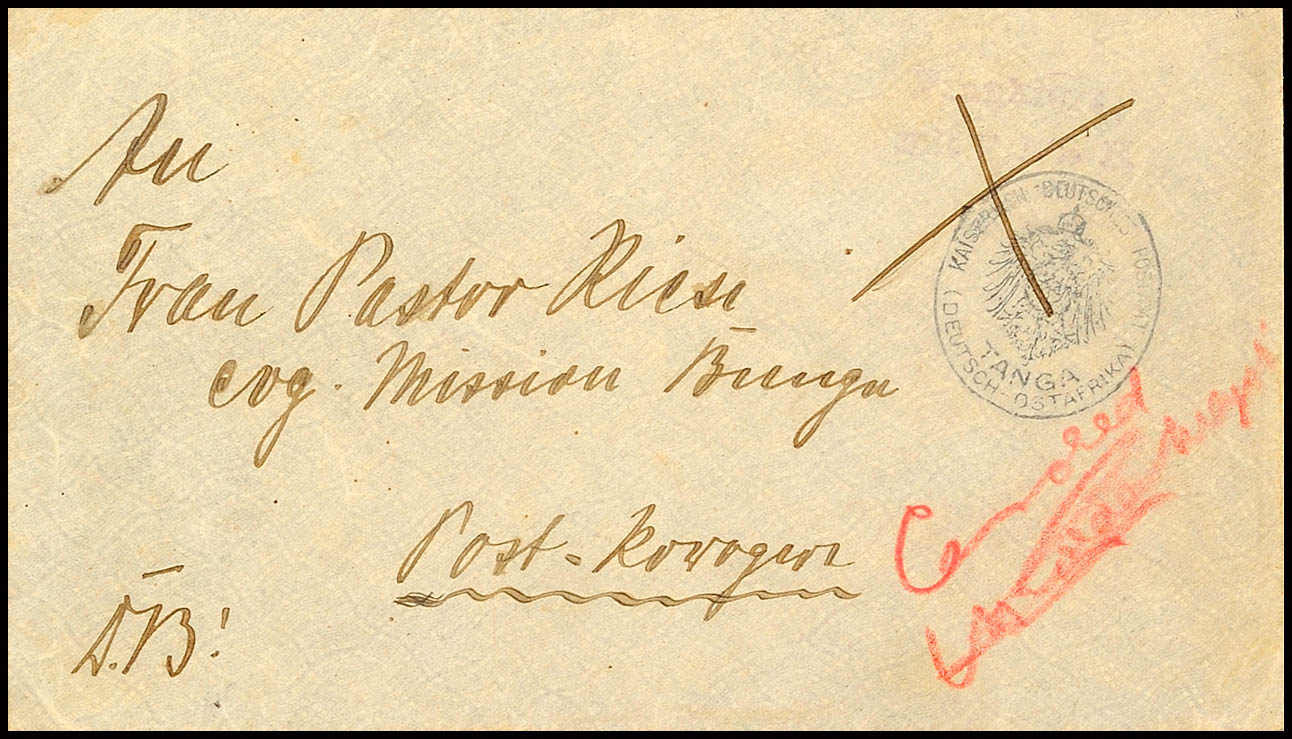 An
Frau Pastor Riese
evg. Mission Bunga
Post-Korogwe
D.B!
KAISERLICH DEUTSCHES POSTAMT
TANGA
(DEUTSCH-OSTAFRIKA)